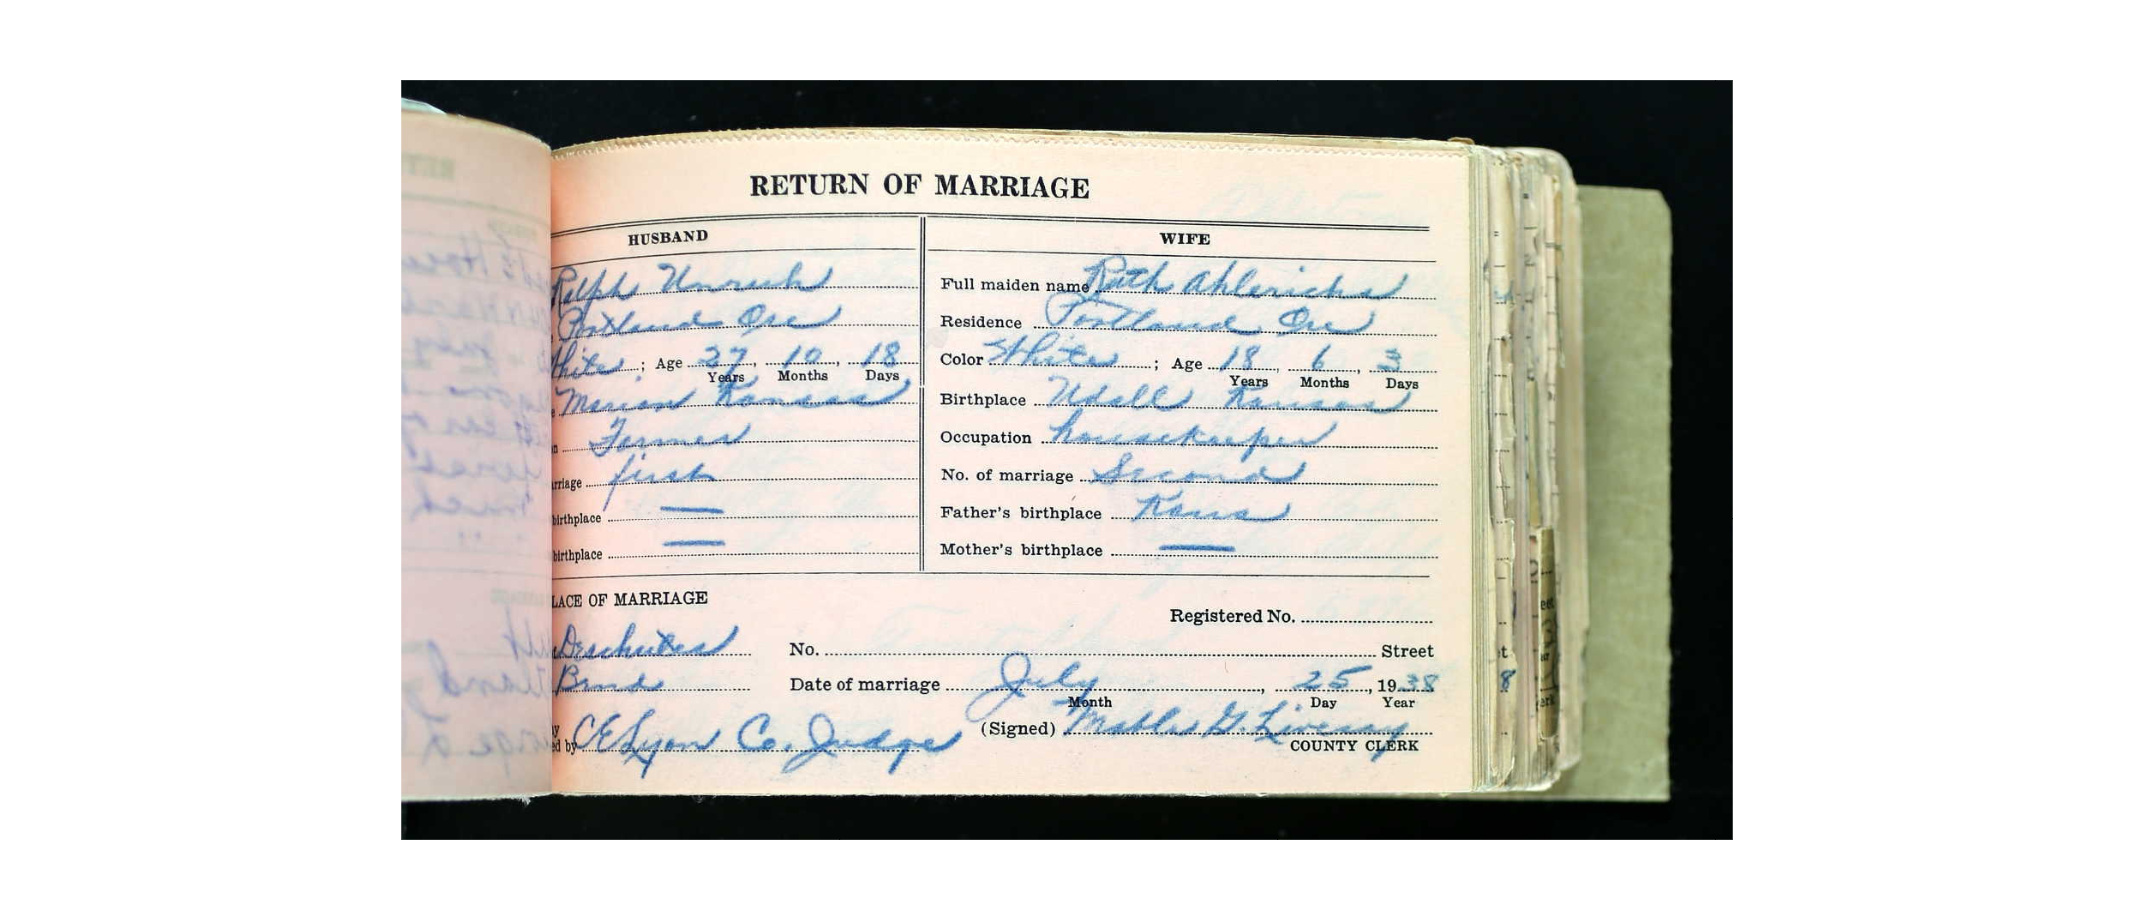 RETURN OF MARRIAGE
HUSBAND
WIFE
Ralph Unruh
Portland Ore
hite ; Age 27 Years, 10 Months, 18 Days
Marion Kansas
n Farmer
rriage first
birthplace —
birthplace —
Full maiden name Ruth Ahlerichs
Residence Portland Ore
Color White ; Age 18 Years, 6 Months, 3 Days
Birthplace Udall Kansas
Occupation housekeeper
No. of marriage Second
Father's birthplace Kans
Mother's birthplace —
LACE OF MARRIAGE
Registered No.
Deschutes
No. Street
Bend
Date of marriage July Month, 25 Day, 1938 Year
ed by C E Lyon Co. Judge
(Signed) Mable G. Livesay
COUNTY CLERK